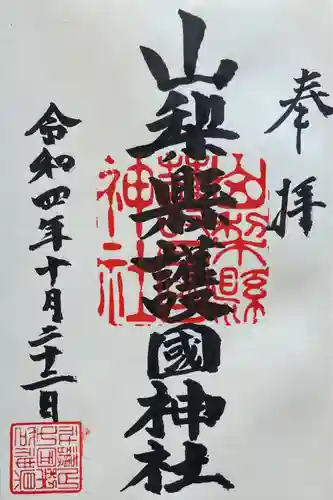 奉拝
山梨縣護國神社
山梨縣護國神社
令和四年十月二十二日